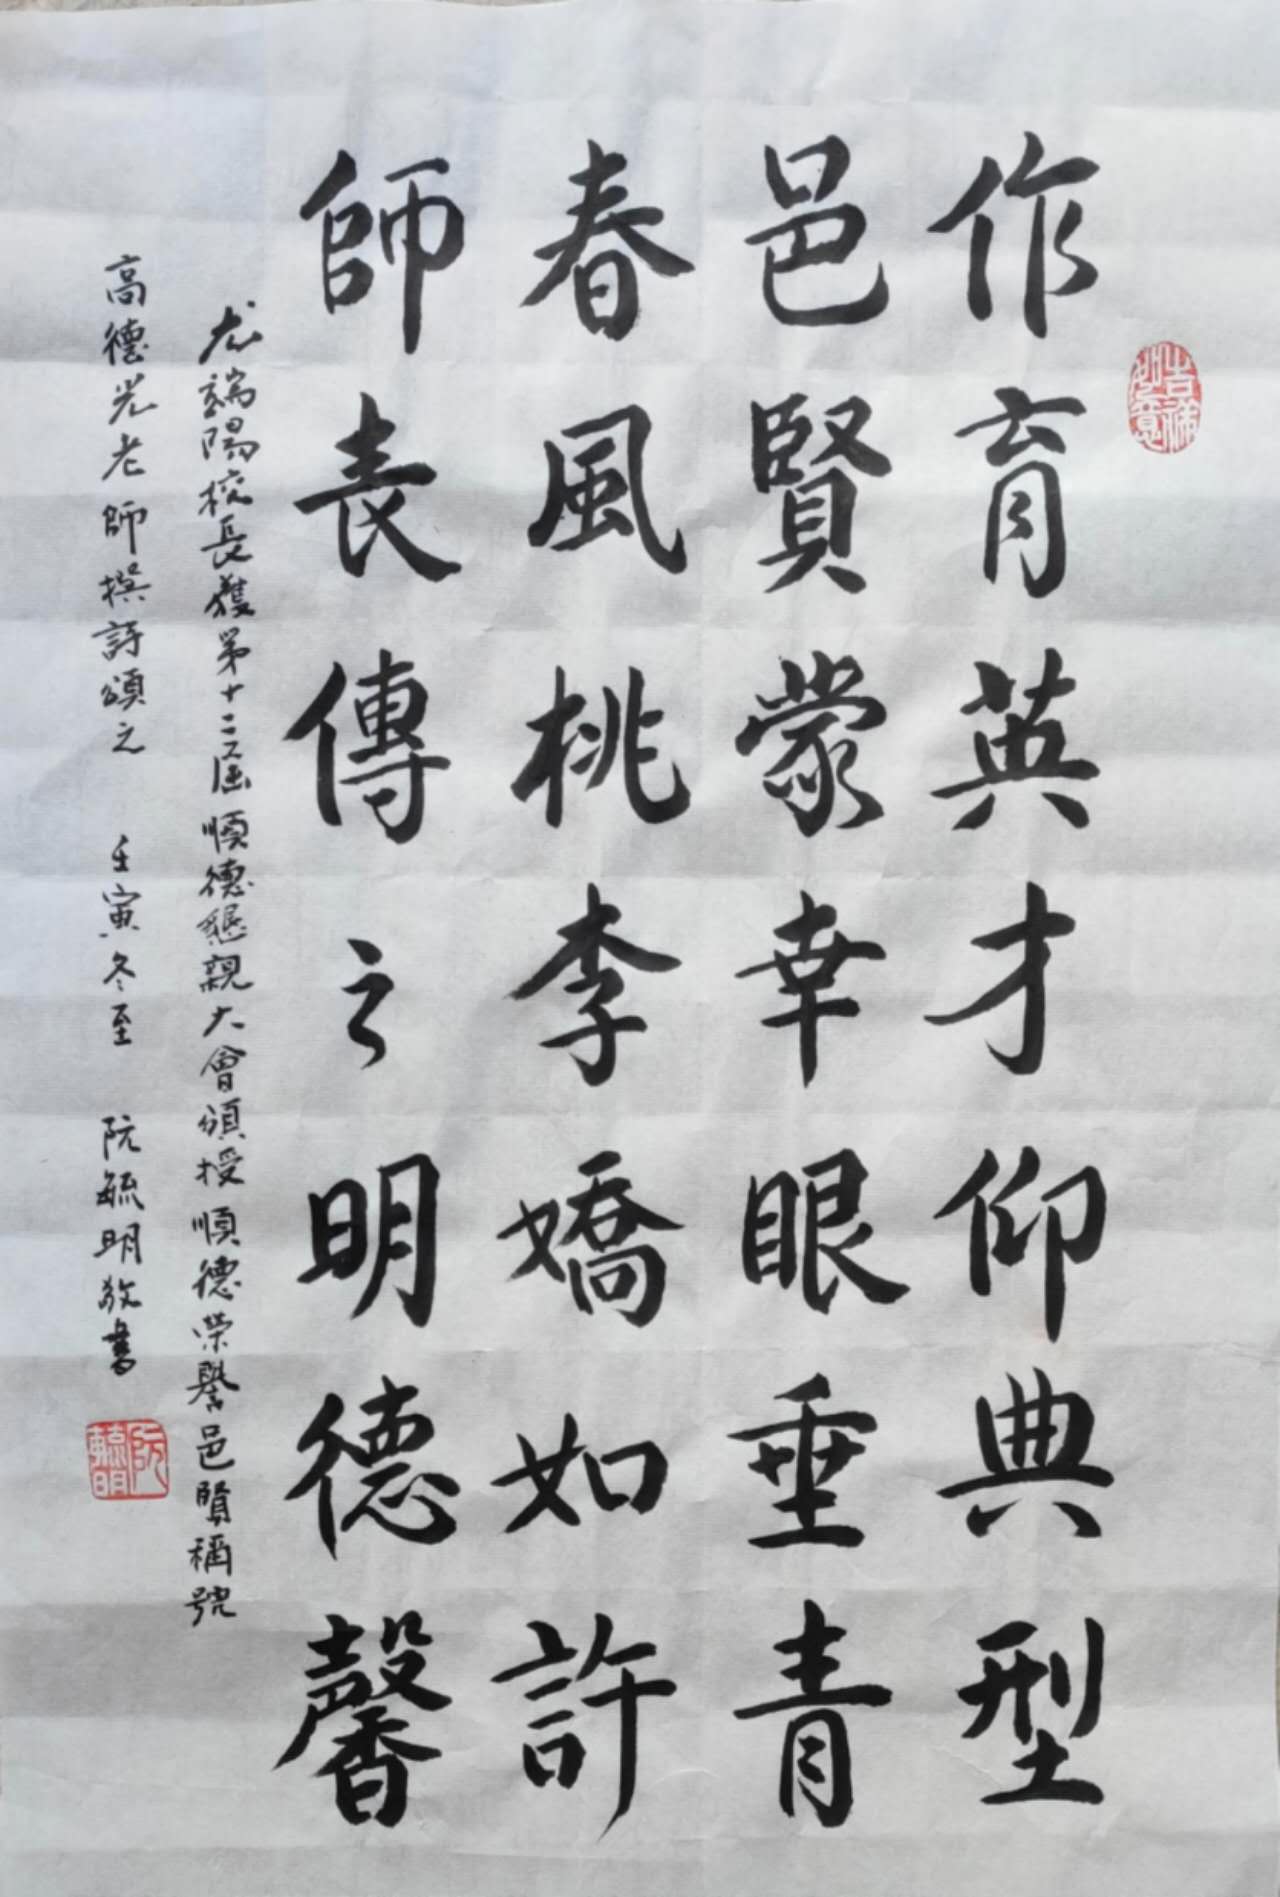 吉祥如意
作育英才仰典型
邑賢蒙幸眼垂青
春風桃李嬌如許
師表傳之明德馨
尤端陽校長獲第十二屆順德懇親大會頒授順德榮譽邑賢稱號
高德光老師撰詩頌之 壬寅冬至 阮毓明敬書
阮毓明